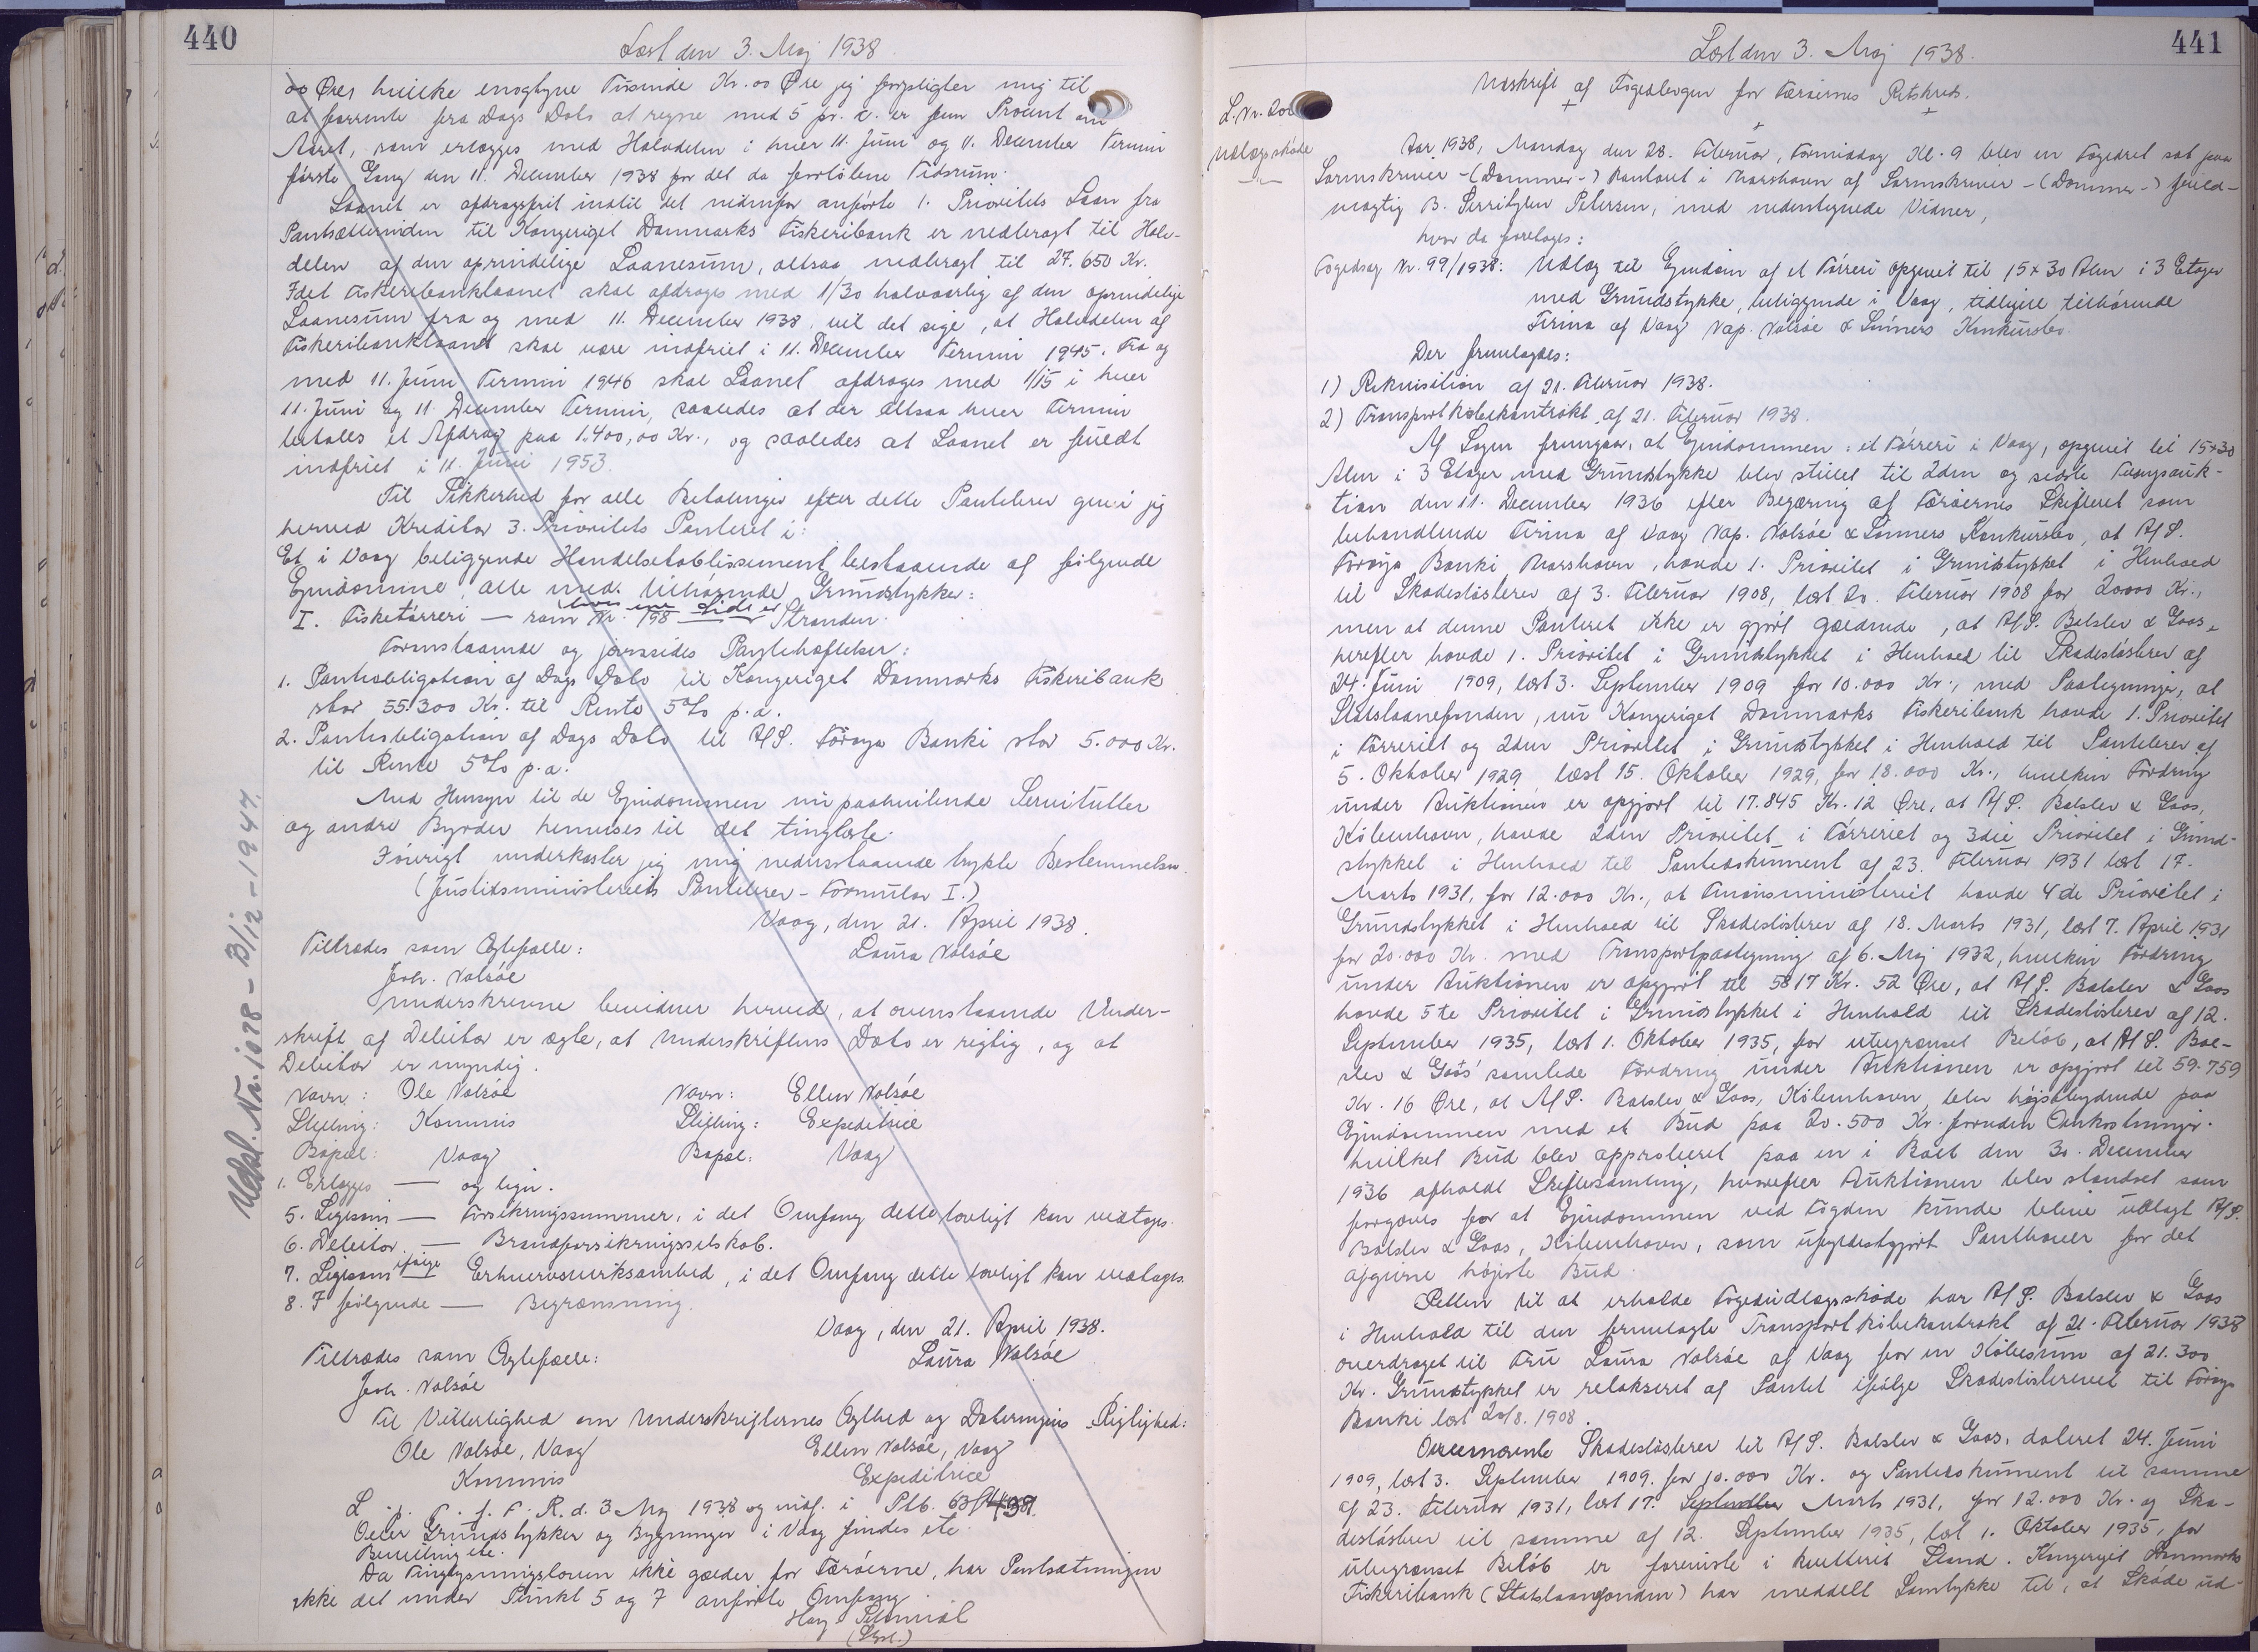 440
Læst den 3. Maj 1938
oo Øre, hvilke enogtyve Tusinde Kr. oo Øre jeg forpligter mig til
at forrente fra Dags Dato at regne med 5 pr. c. er fem Procent om
Aaret, som erlægges med Halvdelen i hver 11. Juni og 11. December Termin
første Gang den 11. December 1938 for det da forløbne Tidsrum.
Laanet er afdragsfrit indtil det nedenfor anførte 1. Prioritets Laan fra
Pantsætterinden til Kongeriget Danmarks Fiskeribank er nedbragt til Halv-
delen af den oprindelige Laanesum, altsaa nedbragt til 27.650 Kr.
Idet Fiskeribanklaanet skal afdrages med 1/30 halvaarlig af den oprindelige
Laanesum fra og med 11. December 1938, vil det sige, at Halvdelen af
Fiskeribanklaanet skal være indfriet i 11. December Termin 1945. Fra og
med 11. Juni Termin 1946 skal Laanet afdrages med 1/15 i hver
11. Juni og 11. December Termin, saaledes at der altsaa hver Termin
betales et Afdrag paa 1.400,00 Kr., og saaledes at Laanet er fuldt
indfriet i 11. Juni 1953.
Til Sikkerhed for alle Betalinger efter dette Pantebrev giver jeg
herved Kreditor 3. Prioritets Panteret i:
Et i Vaag beliggende Handelsetablissement bestaaende af følgende
Ejendomme, alle med tilhørende Grundstykker:
I. Fisketørreri — som Nr. 198 — Stranden.
hos en side er
Foranstaaende og jævnsides Pantehæftelser:
1. Pantobligation af Dags Dato til Kongeriget Danmarks Fiskeribank
stor 55.300 Kr. til Rente 5% p.a.
2. Pantobligation af Dags Dato til A/S. Føroya Banki stor 5.000 Kr.
til Rente 5% p.a.
Med Hensyn til de Ejendommen nu paahvilende Servitutter
og andre Byrder henvises til det tinglæste.
Iøvrigt underkaster jeg mig nedenstaaende trykte Bestemmelser.
(Justitsministeriets Pantebrev - Formular I.)
Vaag, den 21. April 1938.
Tiltrædes som Ægtefælle: Laura Valsøe
Joh. Valsøe
Underskrevne bevidner herved, at ovenstaaende Under-
skrift af Debitor er ægte, at Underskriftens Dato er rigtig, og at
Debitor er myndig.
Navn: Ole Valsøe Navn: Ellen Valsøe
Stilling: Kommis Stilling: Expeditrice
Bopæl: Vaag Bopæl: Vaag
1. Erlægges — og lign.
5. Ligesom — Forsikringssummer, i det Omfang dette lovligt kan vedtages.
6. Debitor — Brandforsikringsselskab.
7. Ligesom ifølge Erhvervsvirksomhed, i det Omfang dette lovligt kan vedtages.
8. I følgende — Begrænsning.
Vaag, den 21. April 1938.
Tiltrædes som Ægtefælle: Laura Valsøe
Joh. Valsøe
Til Vitterlighed om Underskrifternes Ægthed og Dateringens Rigtighed:
Ole Valsøe, Vaag Ellen Valsøe, Vaag
Kommis Expeditrice
L. i. f. F. R. d. 3 Maj 1938 og indf. i Ptb.
Over Grundstykker og Bygninger i Vaag findes ete.
Bevilling ete.
Da Tinglysningsloven ikke gælder for Færøerne, har Pantsætningen
ikke det under Punkt 5 og 7 anførte Omfang.
Udsl. Nr. 1078 - 13/12 - 1947.
441
Læst den 3. Maj 1938.
Udskrift af Fogedbogen for Færøernes Retskreds.
L. Nr. 206
Udlægsskøde
Aar 1938, Mandag den 28. Februar, Formiddag Kl. 9 blev en Fogedret sat paa
Sorenskriver-(Dommer-) Kontoret i Thorshavn af Sorenskriver-(Dommer-) fuld-
mægtig B. Serritzlew Petersen, med nedentegnede Vidner,
hvor da foretoges:
Fogedsag Nr. 99/1938: Udlæg til Ejendom af et Tørreri opgivet til 15 x 30 Alen i 3 Etager
med Grundstykke, beliggende i Vaag, tidligere tilhørende
Firma af Vaag Nap. Valsøe & Sønners Konkursbo.
Der fremlagdes:
1) Rekvisition af 21. Februar 1938.
2) Transportkøbekontrakt af 21. Februar 1938.
Af Sagen fremgaar, at Ejendommen: et Tørreri i Vaag, opgivet til 15x30
Alen i 3 Etager med Grundstykke blev stillet til 2den og sidste Tvangsauk-
tion den 11. December 1936 efter Begæring af Færøernes Skifteret som
behandlende Firma af Vaag Nap. Valsøe & Sønners Konkursbo, at A/S.
Føroya Banki Thorshavn, havde 1. Prioritet i Grundstykket i Henhold
til Skadesløsbrev af 3. Februar 1908, læst 20. Februar 1908 for 20000 Kr.,
men at denne Panteret ikke er gjort gældende, at A/S. Balslev & Goos,
herefter havde 1. Prioritet i Grundstykket i Henhold til Skadesløsbrev af
24. Juni 1909, læst 3. September 1909 for 10.000 Kr., med Paategninger, at
Statslaanefonden, nu Kongeriget Danmarks Fiskeribank havde 1. Prioritet
i Tørreriet og 2den Prioritet i Grundstykket i Henhold til Pantebrev af
5. Oktober 1929, læst 15. Oktober 1929, for 18.000 Kr., hvilken Fordring
under Auktionen er opgjort til 17.845 Kr. 12 Øre, at A/S. Balslev & Goos,
København, havde 2den Prioritet i Tørreriet og 3die Prioritet i Grund-
stykket i Henhold til Pantedokument af 23. Februar 1931 læst 17.
Marts 1931, for 12.000 Kr., at Finansministeriet havde 4de Prioritet i
Grundstykket i Henhold til Skadesløsbrev af 18. Marts 1931, læst 7. April 1931
for 20.000 Kr. med Transportpaategning af 6. Maj 1932, hvilken Fordring
under Auktionen er opgjort til 5817 Kr. 52 Øre, at A/S. Balslev & Goos
havde 5te Prioritet i Grundstykket i Henhold til Skadesløsbrev af 12.
September 1935, læst 1. Oktober 1935, for ubegrænset Beløb, at A/S. Bal-
slev & Goos' samlede Fordring under Auktionen er opgjort til 59.759
Kr. 16 Øre, at A/S. Balslev & Goos, København, blev højstbydende paa
Ejendommen med et Bud paa 20.500 Kr. foruden Omkostninger.
hvilket Bud blev approberet paa en i Boet den 30. December
1936 afholdt Skiftesamling, hvorefter Auktionen blev standset som
forgæves for at Ejendommen ved Fogden kunde blive udlagt A/S.
Balslev & Goos, København, som ufyldestgjort Panthaver for det
afgivne højeste Bud.
Retten til at erholde Fogedudlægsskøde har A/S. Balslev & Goos
i Henhold til den fremlagte Transportkøbekontrakt af 21. Februar 1938
overdraget til Fru Laura Valsøe af Vaag for en Købesum af 21.300
Kr. Grundstykket er relakseret af Pantet ifølge Skadesløsbrevet til Føroya
Banki læst 20/8. 1908.
Ovennævnte Skadesløsbrev til A/S. Balslev & Goos, dateret 24. Juni
1909, læst 3. September 1909, for 10.000 Kr. og Pantedokument til samme
af 23. Februar 1931, læst 17. September Marts 1931, for 12.000 Kr. og Ska-
desløsbrev til samme af 12. September 1935, læst 1. Oktober 1935, for
ubegrænset Beløb er foreviste i kvitteret Stand. Kongeriget Danmarks
Fiskeribank (Statslaanefonden) har meddelt Samtykke til, at Skøde ud-